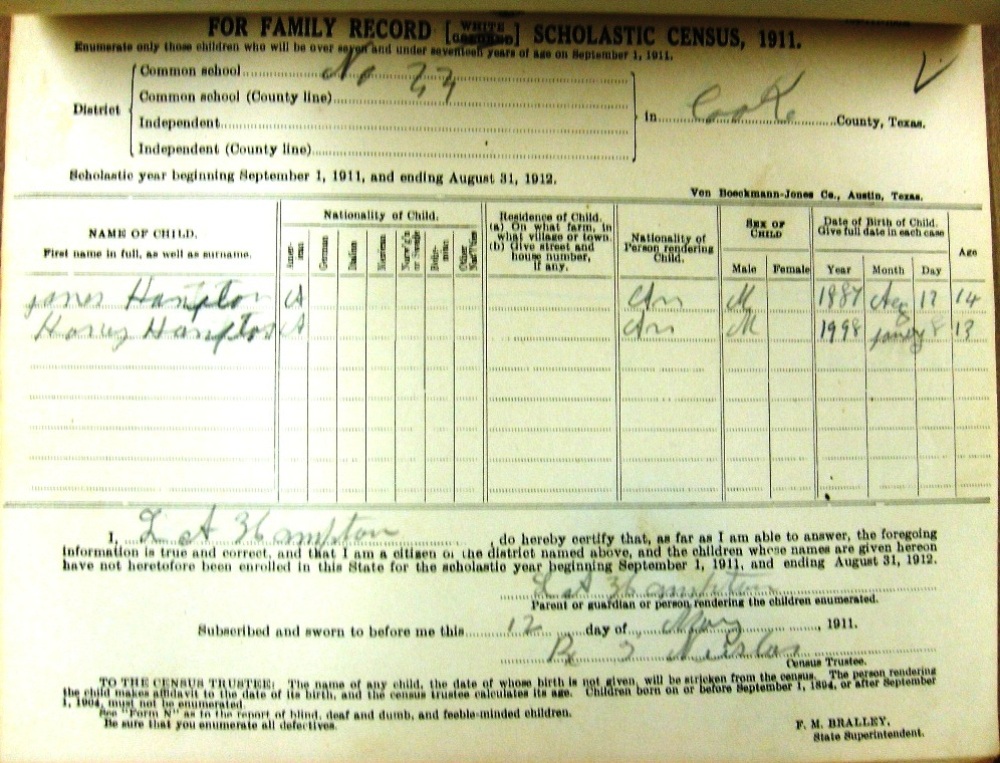 FOR FAMILY RECORD [WHITE COLORED] SCHOLASTIC CENSUS, 1911.
Enumerate only those children who will be over seven and under seventeen years of age on September 1, 1911.
District
Common school No
Common school (County line)
Independent
Independent (County line)
in Cooke County, Texas.
Scholastic year beginning September 1, 1911, and ending August 31, 1912.
Von Boeckmann-Jones Co., Austin, Texas.
NAME OF CHILD.
First name in full, as well as surname.
Nationality of Child.
American
German
Italian
Mexican
Norw'g'n or Swede
Bohemian
Other Nat'l'ties
Residence of Child.
(a) On what farm, in what village or town.
(b) Give street and house number, if any.
Nationality of Person rendering Child.
SEX OF CHILD
Male
Female
Date of Birth of Child.
Give full date in each case
Year
Month
Day
Age
James Hampton A Am M 1897 Aug 14
Harvey Hampton A Am M 1998 8 13
I, L A Hampton, do hereby certify that, as far as I am able to answer, the foregoing
information is true and correct, and that I am a citizen of the district named above, and the children whose names are given hereon
have not heretofore been enrolled in this State for the scholastic year beginning September 1, 1911, and ending August 31, 1912.
L A Hampton
Parent or guardian or person rendering the children enumerated.
Subscribed and sworn to before me this 12 day of May, 1911.
Census Trustee.
TO THE CENSUS TRUSTEE: The name of any child, the date of whose birth is not given, will be stricken from the census. The person rendering
the child makes affidavit to the date of its birth, and the census trustee calculates its age. Children born on or before September 1, 1894, or after September
1, 1904, must not be enumerated.
See "Form N" as to the report of blind, deaf and dumb, and feeble-minded children.
Be sure that you enumerate all defectives.
F. M. BRALLEY,
State Superintendent.